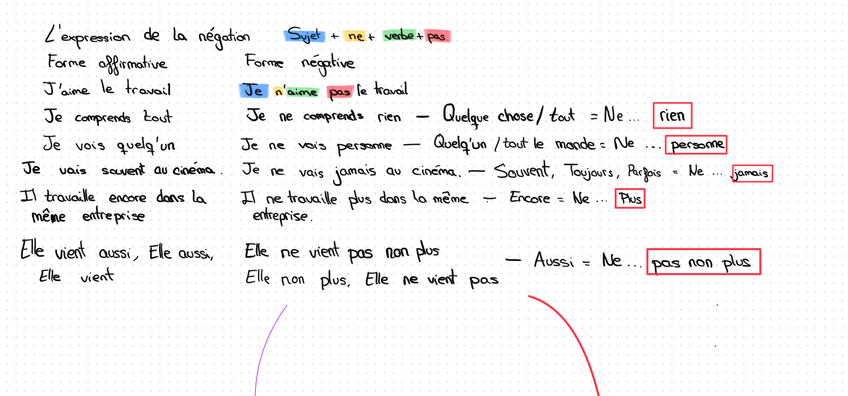 L'expression de la négation Sujet + ne + verbe + pas
Forme affirmative Forme négative
J'aime le travail Je n'aime pas le travail
Je comprends tout Je ne comprends rien — Quelque chose / tout = Ne ... rien
Je vois quelq'un Je ne vois personne — Quelq'un / tout le monde = Ne ... personne
Je vais souvent au cinéma. Je ne vais jamais au cinéma. — Souvent, Toujours, Parfois = Ne ... jamais
Il travaille encore dans la Il ne travaille plus dans la même — Encore = Ne ... Plus
même entreprise entreprise.
Elle vient aussi, Elle aussi, Elle ne vient pas non plus
— Aussi = Ne ... pas non plus
Elle vient Elle non plus, Elle ne vient pas